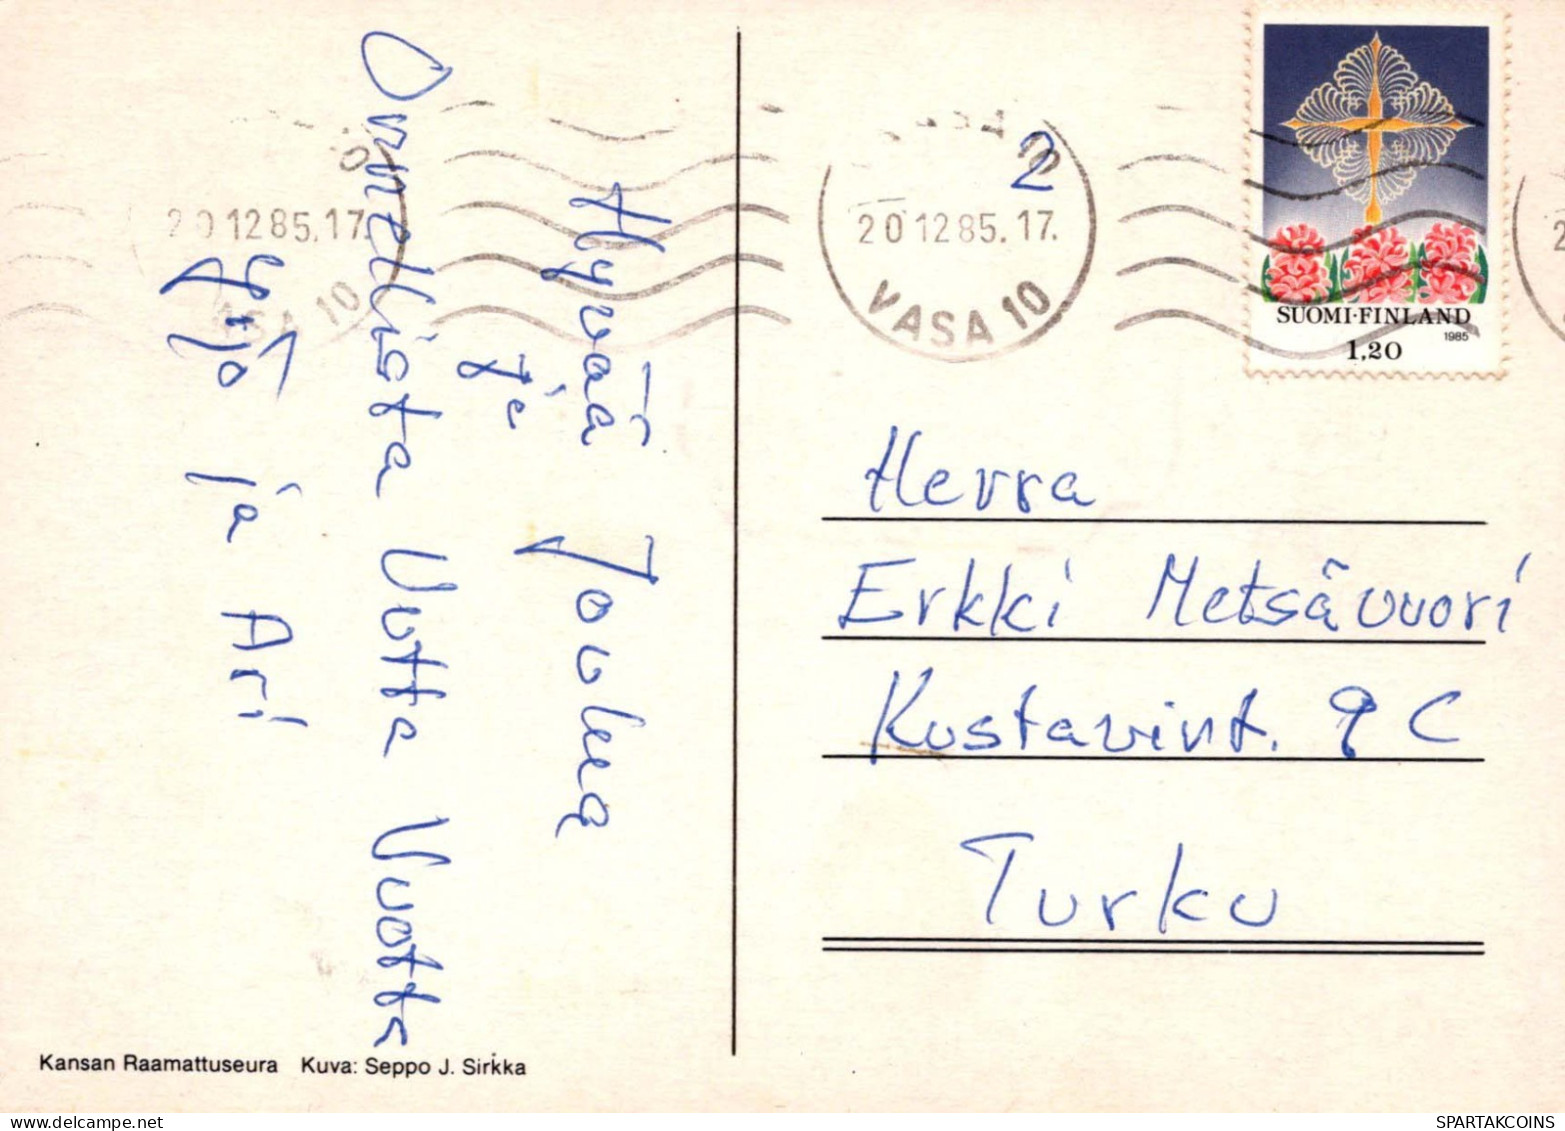 Hyvää Joulua
ja
Onnellista Uutta Vuotta
Yrjö ja Ari
Kansan Raamattuseura Kuva: Seppo J. Sirkka
20.12.85.17.
VASA 10
2
20.12.85.17.
VASA 10
SUOMI·FINLAND
1985
1,20
Herra
Erkki Metsävuori
Kustavint. 9 C
Turku
SPARTAKCOINS